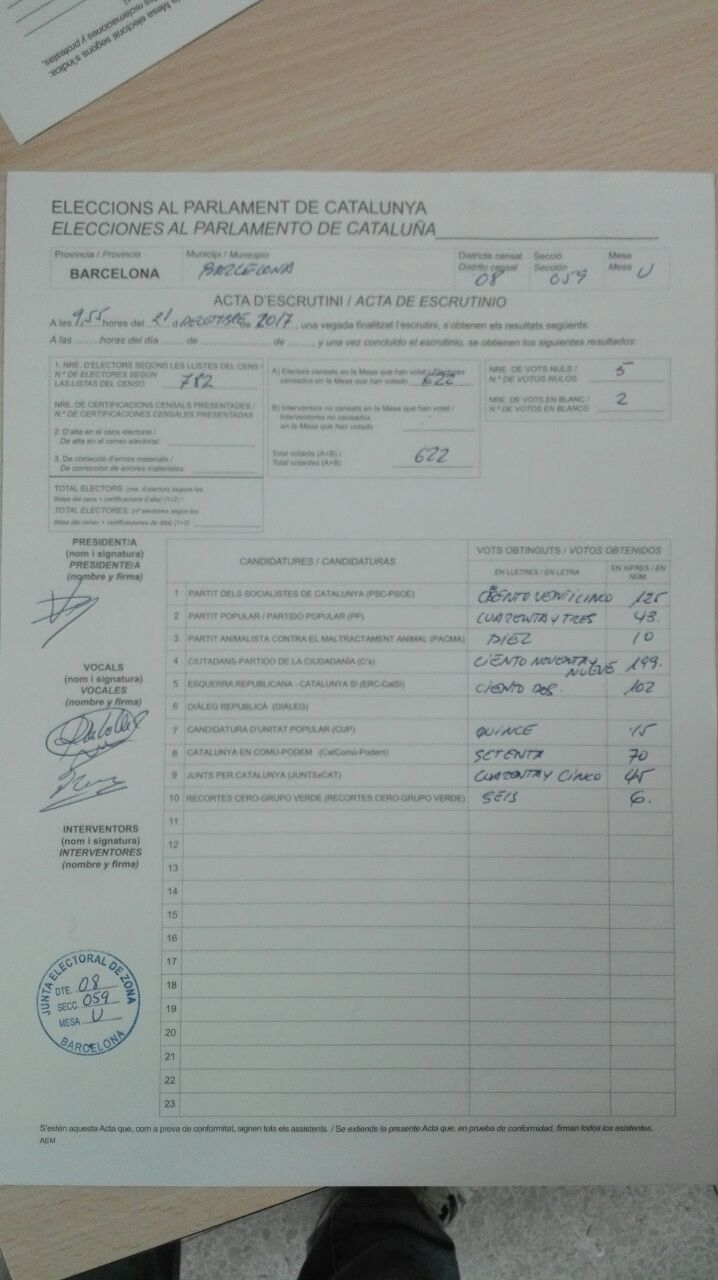 la Mesa electoral segons s'indica:
reclamaciones y protestas,
ELECCIONS AL PARLAMENT DE CATALUNYA
ELECCIONES AL PARLAMENTO DE CATALUÑA
Província / Provincia Municipi / Municipio Districte censal Secció Mesa
BARCELONA BARCELONA Distrito censal Sección Mesa U
08 059
ACTA D'ESCRUTINI / ACTA DE ESCRUTINIO
A les 9,55 hores del 21 d de 2017, una vegada finalitzat l'escrutini, s'obtenen els resultats següents:
A las horas del día de de y una vez concluido el escrutinio, se obtienen los siguientes resultados:
1. NRE. D'ELECTORS SEGONS LES LLISTES DEL CENS /
N.º DE ELECTORES SEGÚN
LAS LISTAS DEL CENSO 782
NRE. DE CERTIFICACIONS CENSALS PRESENTADES /
N.º DE CERTIFICACIONES CENSALES PRESENTADAS
2. D'alta en el cens electoral /
De alta en el censo electoral:
3. De correcció d'errors materials /
De corrección de errores materiales:
TOTAL ELECTORS: (nre. d'electors segons les
llistes del cens + certificacions d'alta) (1+2) /
TOTAL ELECTORES: (nº electores según las
listas del censo + certificaciones de alta) (1+2)
A) Electors censats en la Mesa que han votat / Electores
censados en la Mesa que han votado 622
B) Interventors no censats en la Mesa que han votat /
Interventores no censados
en la Mesa que han votado
Total votants (A+B) /
Total votantes (A+B) 622
NRE. DE VOTS NULS /
N.º DE VOTOS NULOS 5
NRE. DE VOTS EN BLANC /
N.º DE VOTOS EN BLANCO 2
PRESIDENT/A
(nom i signatura)
PRESIDENTE/A
(nombre y firma)
VOCALS
(nom i signatura)
VOCALES
(nombre y firma)
INTERVENTORS
(nom i signatura)
INTERVENTORES
(nombre y firma)
CANDIDATURES / CANDIDATURAS VOTS OBTINGUTS / VOTOS OBTENIDOS
EN LLETRES / EN LETRA EN XIFRES / EN NÚM.
1 PARTIT DELS SOCIALISTES DE CATALUNYA (PSC-PSOE) CIENTO VEINTICINCO 125
2 PARTIT POPULAR / PARTIDO POPULAR (PP) CUARENTA Y TRES 43.
3 PARTIT ANIMALISTA CONTRA EL MALTRACTAMENT ANIMAL (PACMA) DIEZ 10
4 CIUTADANS-PARTIDO DE LA CIUDADANÍA (C's) CIENTO NOVENTA Y NUEVE 199.
5 ESQUERRA REPUBLICANA - CATALUNYA SÍ (ERC-CatSí) CIENTO DOS. 102
6 DIÀLEG REPUBLICÀ (DIÀLEG)
7 CANDIDATURA D'UNITAT POPULAR (CUP) QUINCE 15
8 CATALUNYA EN COMÚ-PODEM (CatComú-Podem) SETENTA 70
9 JUNTS PER CATALUNYA (JUNTSxCAT) CUARENTA Y CINCO 45
10 RECORTES CERO-GRUPO VERDE (RECORTES CERO-GRUPO VERDE) SEIS 6.
11
12
13
14
15
16
17
18
19
20
21
22
23
JUNTA ELECTORAL DE ZONA
DTE. 08
SECC. 059
MESA U
BARCELONA
S'estén aquesta Acta que, com a prova de conformitat, signen tots els assistents. / Se extiende la presente Acta que, en prueba de conformidad, firman todos los asistentes.
AEM